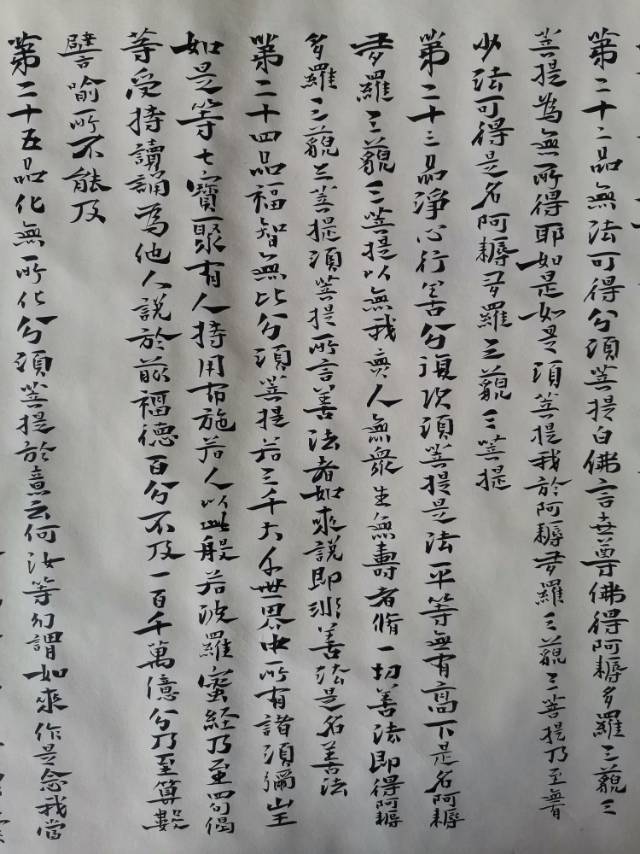 第二十二品無法可得分須菩提白佛言世尊佛得阿耨多羅三藐三
菩提為無所得耶如是如是須菩提我於阿耨多羅三藐三菩提乃至無有
少法可得是名阿耨多羅三藐三菩提
第二十三品淨心行善分復次須菩提是法平等無有高下是名阿耨
多羅三藐三菩提以無我無人無眾生無壽者脩一切善法即得阿耨
多羅三藐三菩提須菩提所言善法者如來說即非善法是名善法
第二十四品福智無比分須菩提若三千大千世界中所有諸須彌山王
如是等七寶聚有人持用布施若人以此般若波羅蜜經乃至四句偈
等受持讀誦為他人說於前福德百分不及一百千萬億分乃至算數
譬喻所不能及
第二十五品化無所化分須菩提於意云何汝等勿謂如來作是念我當